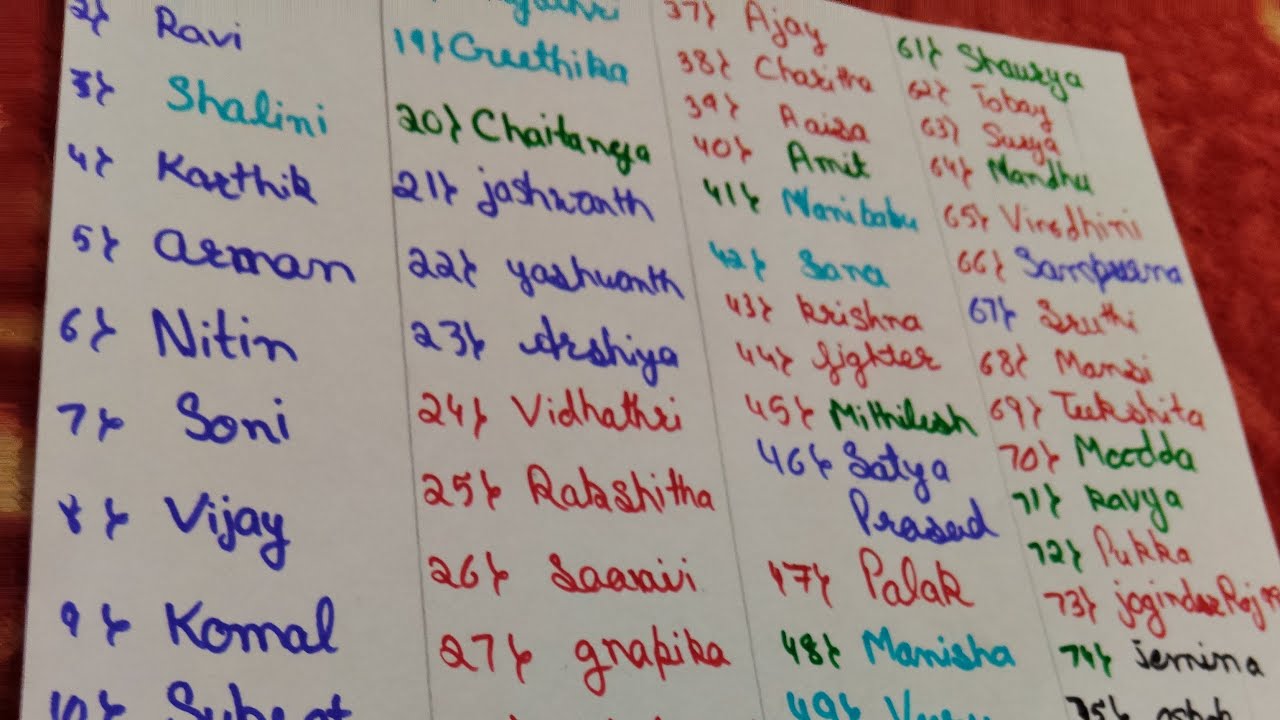 2} Ravi
3} Shalini
4} Karthik
5} Arman
6} Nitin
7} Soni
8} Vijay
9} Komal
10}
19} Greethika
20} Chaitanya
21} jashwanth
22} yashwanth
23} Arshiya
24} Vidhathri
25} Rakshitha
26} Saanvi
27} gnapika
37} Ajay
38} Charitha
39} Raisa
40} Amit
41} Manibabu
42} Sana
43} krishna
44} fighter
45} Mithilesh
46} Satya
Prasad
47} Palak
48} Manisha
49}
61} Shaurya
62} Tobay
63} Surya
64} Nandhu
65} Virodhini
66} Sampurna
67} Sruthi
68} Mansi
69} Teekshita
70} Moodda
71} kavya
72} Pukka
73}
74} jemima
75}